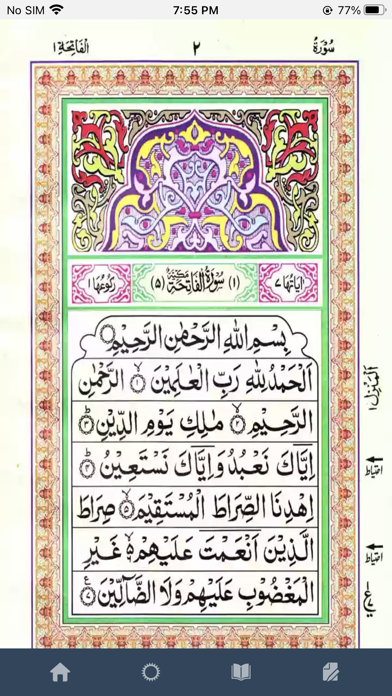 No SIM 7:55 PM 77%
سُوْرَةُ ٢ الْفَاتِحَةِ ١
اٰيَاتُهَا ٧ (١) سُوْرَةُ الْفَاتِحَةِ مَكِّيَّةٌ (٥) رُكُوْعُهَا ١
بِسْمِ اللّٰهِ الرَّحْمٰنِ الرَّحِيْمِ
اَلْحَمْدُ لِلّٰهِ رَبِّ الْعٰلَمِيْنَ ١ الرَّحْمٰنِ
الرَّحِيْمِ ٢ مٰلِكِ يَوْمِ الدِّيْنِ ٣
اِيَّاكَ نَعْبُدُ وَاِيَّاكَ نَسْتَعِيْنُ ٤
اِهْدِنَا الصِّرَاطَ الْمُسْتَقِيْمَ ٥ صِرَاطَ
الَّذِيْنَ اَنْعَمْتَ عَلَيْهِمْ ٦ غَيْرِ
الْمَغْضُوْبِ عَلَيْهِمْ وَلَا الضَّآلِّيْنَ ٧
اَلْمَنْزِل ١
احتياط
احتياط